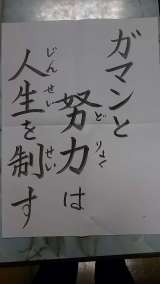 ガマンと
努力は
どりょく
人生を制す
じんせい せい